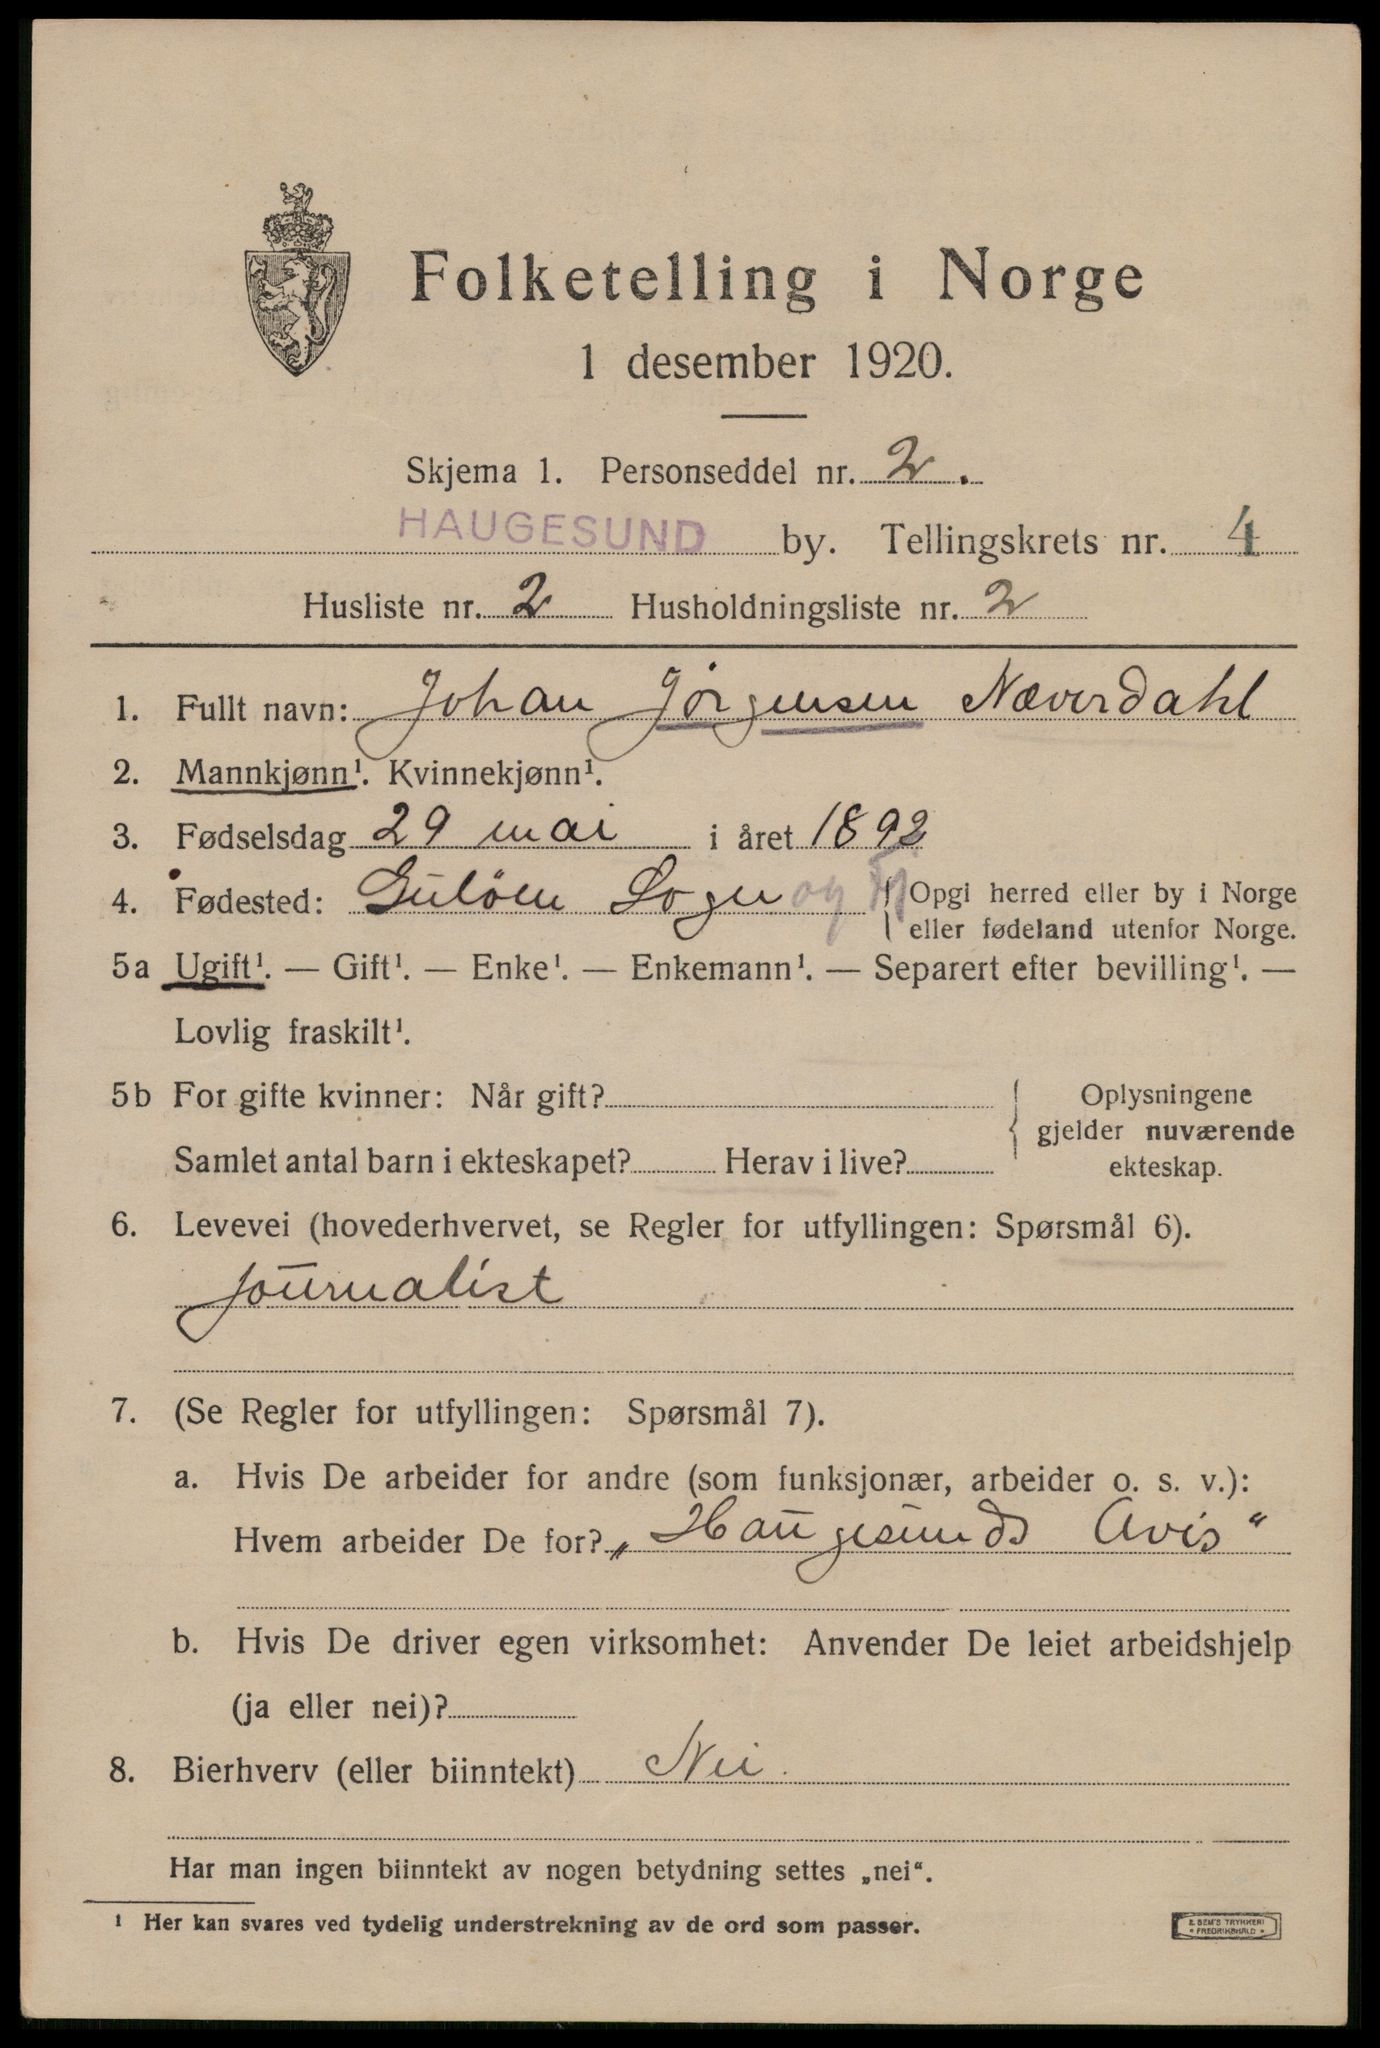 Folketelling i Norge
1 desember 1920.
Skjema 1. Personseddel nr. 2.
HAUGESUND by. Tellingskrets nr. 4
Husliste nr. 2 Husholdningsliste nr. 2
1. Fullt navn: Johan Jörgensen Næverdahl
2. Mannkjønn¹. Kvinnekjønn¹.
3. Fødselsdag 29 mai i året 1892
4. Fødested: Gulöen Sogn og Fj { Opgi herred eller by i Norge
eller fødeland utenfor Norge.
5a Ugift¹. — Gift¹. — Enke¹. — Enkemann¹. — Separert efter bevilling¹. —
Lovlig fraskilt¹.
5b For gifte kvinner: Når gift? { Oplysningene
gjelder nuværende
Samlet antal barn i ekteskapet? Herav i live? ekteskap.
6. Levevei (hovederhvervet, se Regler for utfyllingen: Spørsmål 6).
Journalist
7. (Se Regler for utfyllingen: Spørsmål 7).
a. Hvis De arbeider for andre (som funksjonær, arbeider o. s. v.):
Hvem arbeider De for? „Haugesunds Avis“
b. Hvis De driver egen virksomhet: Anvender De leiet arbeidshjelp
(ja eller nei)?
8. Bierhverv (eller biinntekt) Nei.
Har man ingen biinntekt av nogen betydning settes „nei“.
¹ Her kan svares ved tydelig understrekning av de ord som passer.
E SEM'S TRYKKERI
• FREDRIKSHALD •